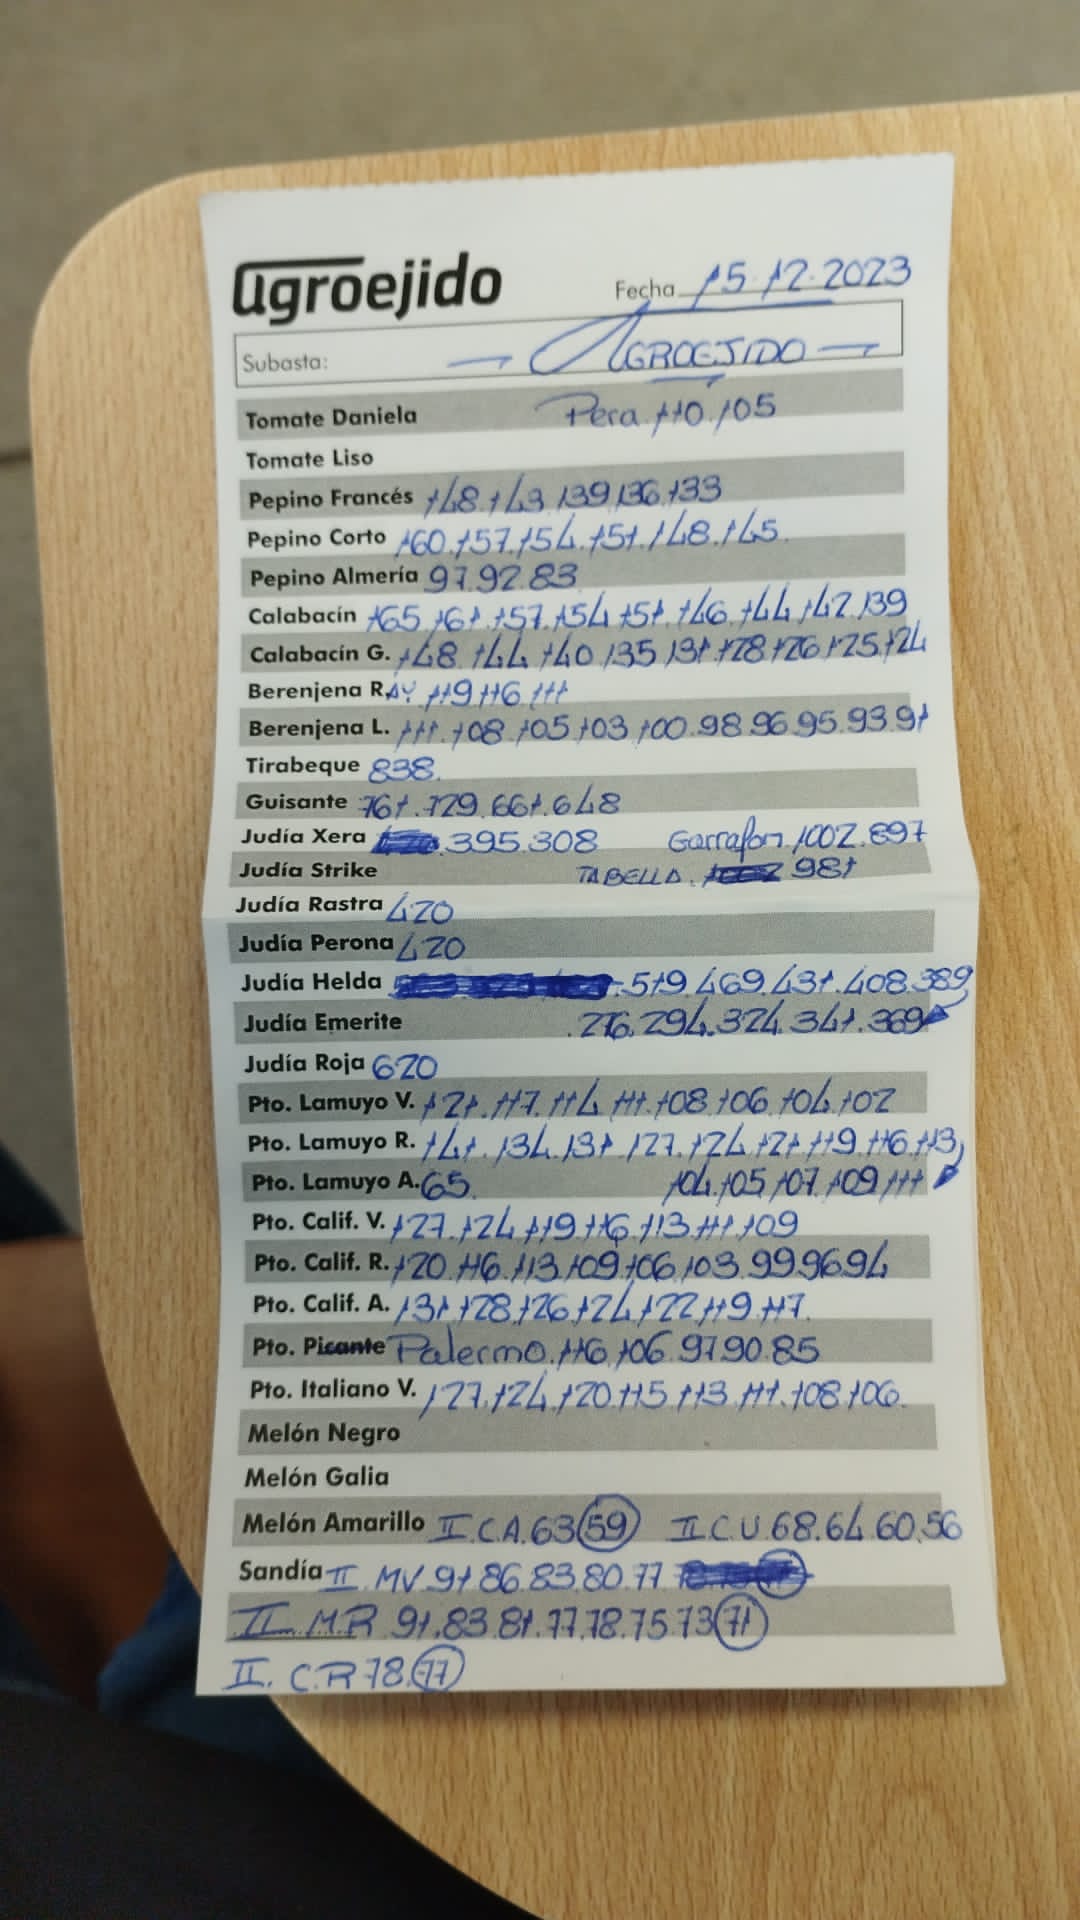 agroejido
Fecha 15.12.2023
Subasta: — AGROEJIDO —
Tomate Daniela Pera 110.105
Tomate Liso
Pepino Francés 148.143.139.136.133
Pepino Corto 160.157.154.151.148.145.
Pepino Almería 97.92.83
Calabacín 165.161.157.154.151.146.144.142.139
Calabacín G. 148.144.140.135.131.128.126.125.124
Berenjena R. AY 119.116.111
Berenjena L. 111.108.105.103.100.98.96.95.93.91
Tirabeque 838.
Guisante 761.729.661.648
Judía Xera .395.308 Garrafon.1002.897
Judía Strike TABELLA. 981
Judía Rastra 420
Judía Perona 420
Judía Helda .519.469.431.408.389
Judía Emerite .276.294.324.341.369
Judía Roja 620
Pto. Lamuyo V. 121.117.114.111.108.106.104.102
Pto. Lamuyo R. 141.134.131.127.124.121.119.116.113
Pto. Lamuyo A. 65. 104.105.107.109.111
Pto. Calif. V. 127.124.119.116.113.111.109
Pto. Calif. R. 120.116.113.109.106.103.99.96.94
Pto. Calif. A. 131.128.126.124.122.119.117.
Pto. Picante Palermo.116.106.97.90.85
Pto. Italiano V. 127.124.120.115.113.111.108.106.
Melón Negro
Melón Galia
Melón Amarillo II.C.A.63.59 II.C.U.68.64.60.56
Sandía II MV.91.86.83.80.77
II.M.R 91.83.81.77.78.75.73.71
II. C.R 78.77